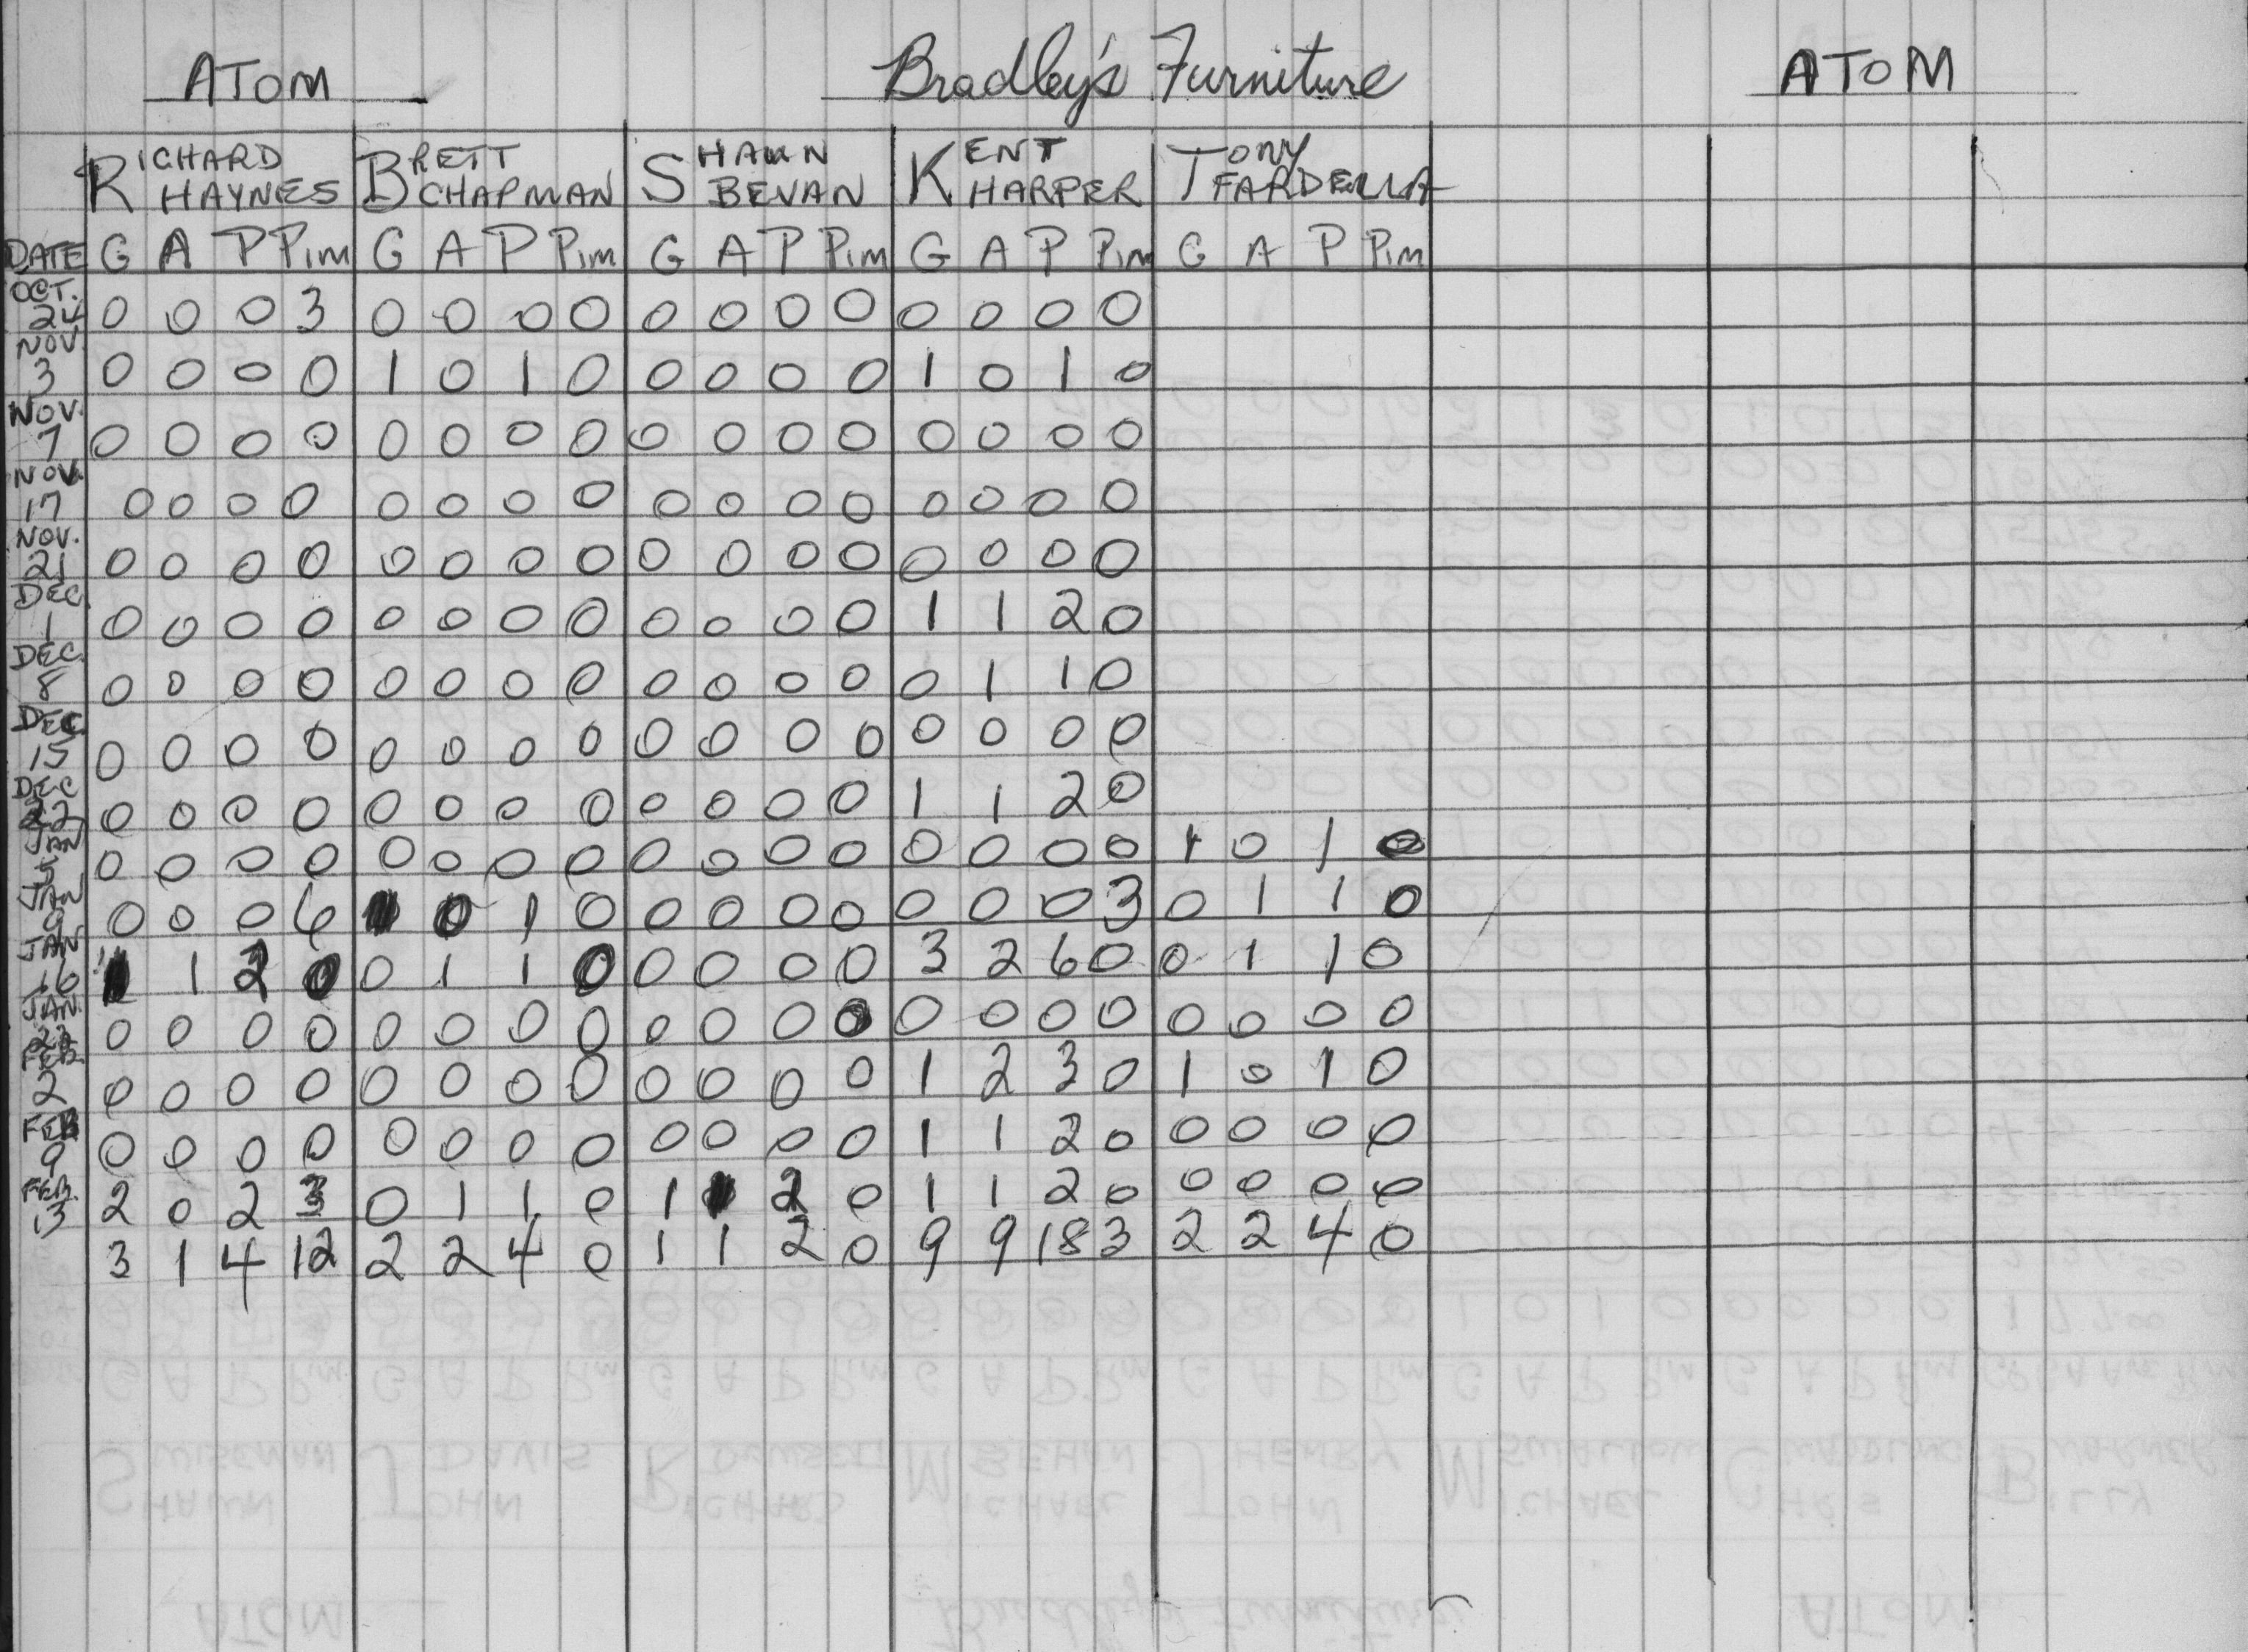 ATOM Bradley's Furniture ATOM
RICHARD HAYNES BRETT CHAPMAN SHAWN BEVAN KENT HARPER TONY FARDELLA
DATE G A P Pim G A P Pim G A P Pim G A P Pim G A P Pim
OCT. 24 0 0 0 3 0 0 0 0 0 0 0 0 0 0 0 0
NOV 3 0 0 0 0 1 0 1 0 0 0 0 0 1 0 1 0
NOV. 7 0 0 0 0 0 0 0 0 0 0 0 0 0 0 0 0
NOV. 17 0 0 0 0 0 0 0 0 0 0 0 0 0 0 0 0
NOV. 21 0 0 0 0 0 0 0 0 0 0 0 0 0 0 0 0
DEC. 1 0 0 0 0 0 0 0 0 0 0 0 0 1 1 2 0
DEC. 8 0 0 0 0 0 0 0 0 0 0 0 0 0 1 1 0
DEC 15 0 0 0 0 0 0 0 0 0 0 0 0 0 0 0 0
DEC 22 0 0 0 0 0 0 0 0 0 0 0 0 1 1 2 0
JAN 5 0 0 0 0 0 0 0 0 0 0 0 0 0 0 0 0 1 0 1 0
JAN 9 0 0 0 6 0 1 0 0 0 0 0 0 0 0 3 0 1 1 0
JAN 16 1 1 2 0 0 1 1 0 0 0 0 0 3 2 6 0 0 1 1 0
JAN. 0 0 0 0 0 0 0 0 0 0 0 0 0 0 0 0 0 0 0 0
FEB. 2 0 0 0 0 0 0 0 0 0 0 0 0 1 2 3 0 1 0 1 0
FEB 9 0 0 0 0 0 0 0 0 0 0 0 0 1 1 2 0 0 0 0 0
FEB. 13 2 0 2 3 0 1 1 0 1 2 0 1 1 2 0 0 0 0 0
3 1 4 12 2 2 4 0 1 1 2 0 9 9 18 3 2 2 4 0